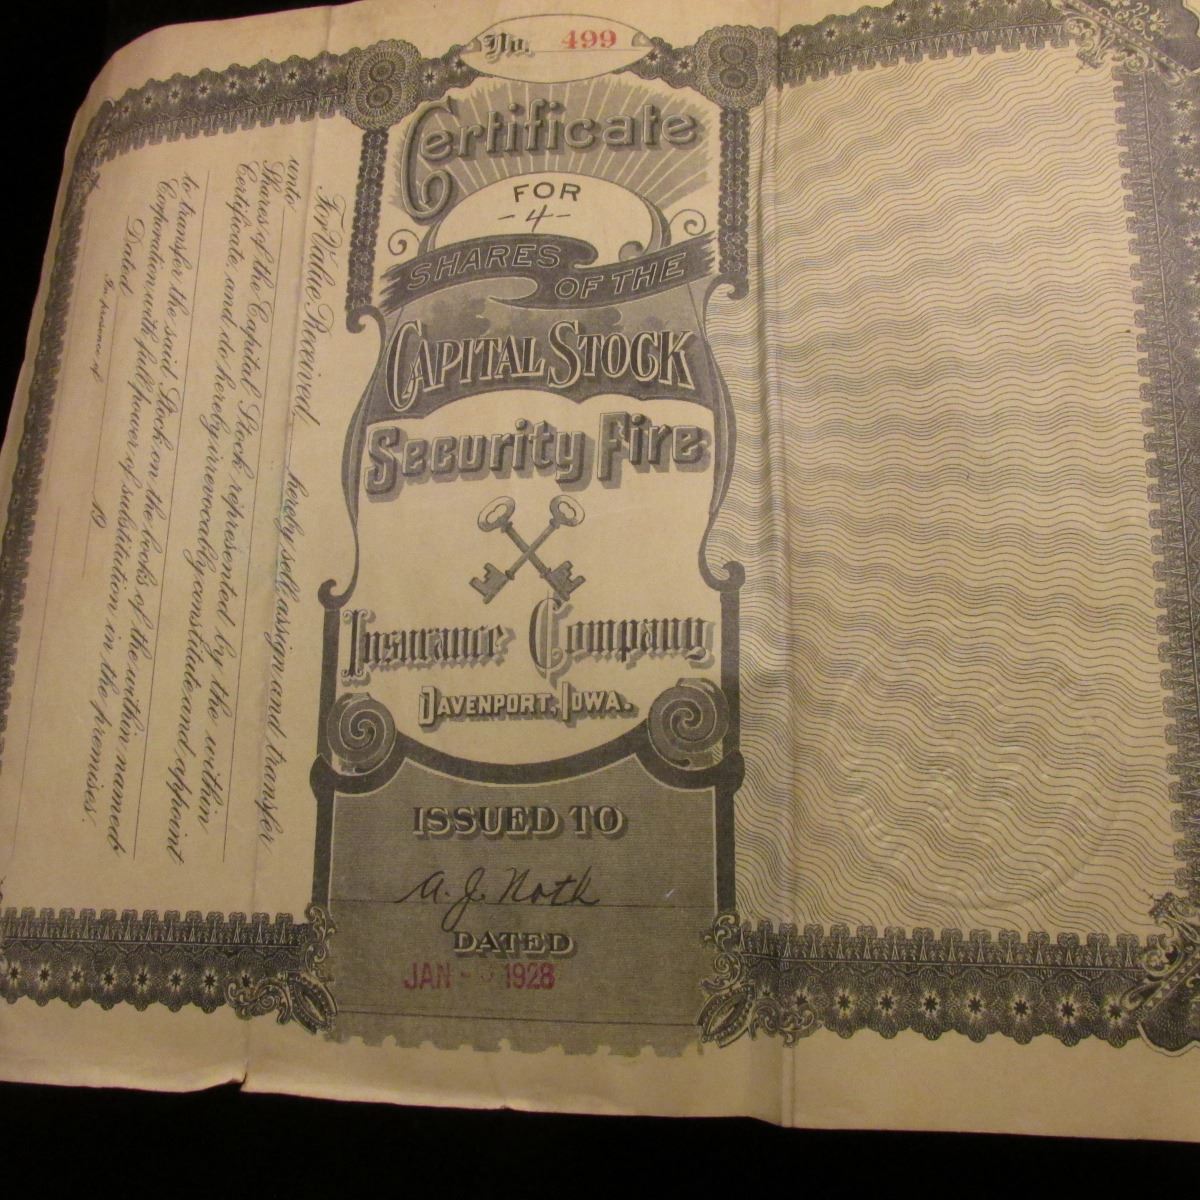 No. 499
Certificate
FOR
-4-
SHARES
OF THE
CAPITAL STOCK
Security Fire
Insurance Company
DAVENPORT, IOWA.
ISSUED TO
A. J. Noth
DATED
JAN - 1928
For Value Received, hereby sell, assign and transfer
unto
Shares of the Capital Stock represented by the within
Certificate and do hereby irrevocably constitute and appoint
to transfer the said Stock on the books of the within named
Corporation with full power of substitution in the premises.
Dated 19
In presence of